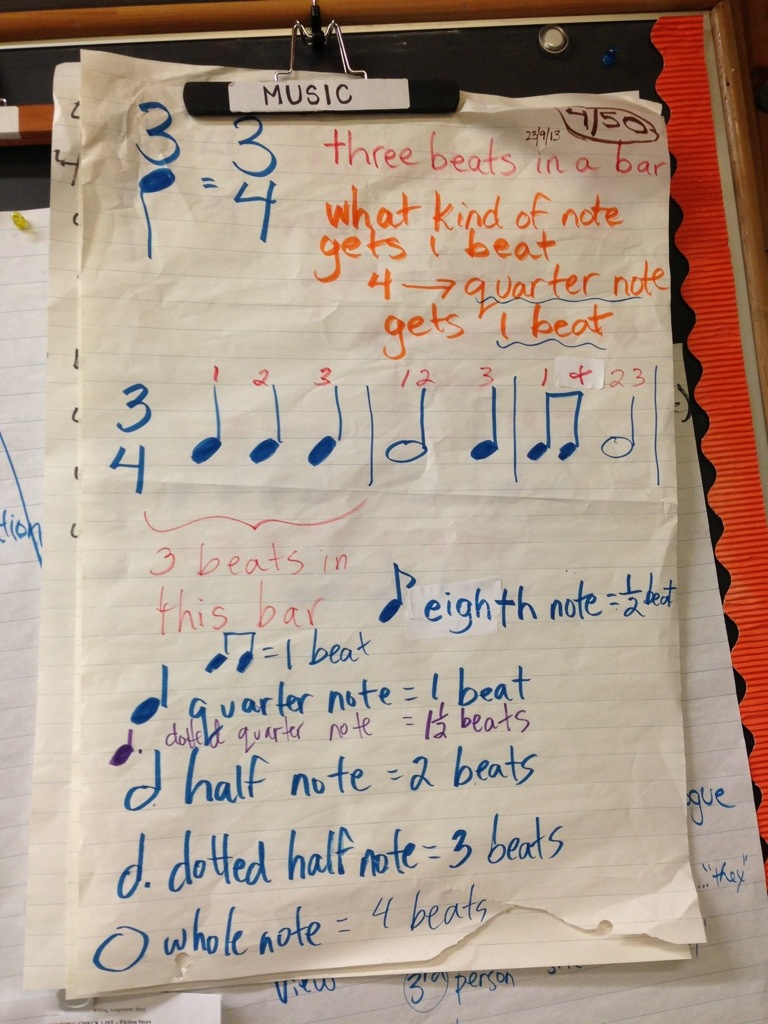 MUSIC
4/50
23/9/13
3 = 3
4
three beats in a bar
what kind of note
gets 1 beat
4 → quarter note
gets 1 beat
1 2 3 1 2 3 1 + 2 3
3
4
3 beats in
this bar
eighth note = 1/2 beat
= 1 beat
quarter note = 1 beat
dotted quarter note = 1 1/2 beats
half note = 2 beats
dotted half note = 3 beats
whole note = 4 beats
tion
ogue
..."they"
View
3rd person